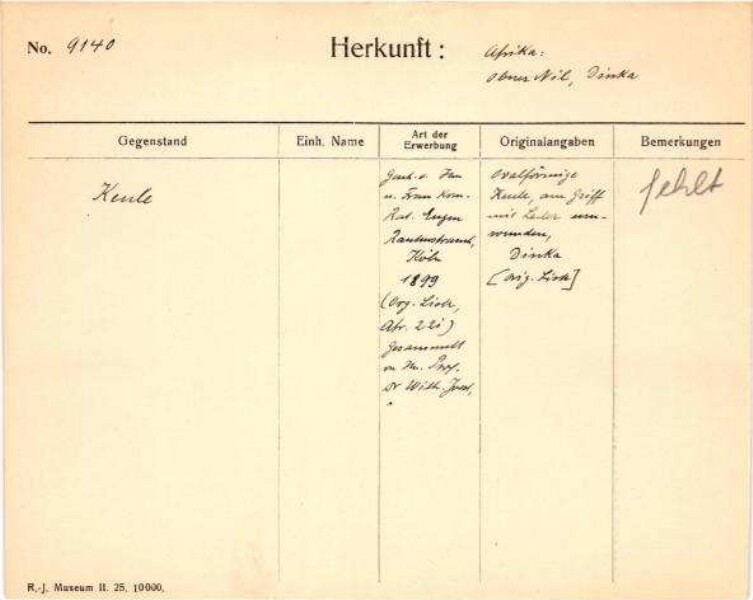 No. 9140
Herkunft:
Afrika:
Obrer Nil, Dinka
Gegenstand
Einh. Name
Art der Erwerbung
Originalangaben
Bemerkungen
Keule
Gesch. v. Herrn
u. Frau Kom.-
Rat. Eugen
Rautenstrauch,
Köln
1899
(Org. Liste,
Afr. 22i)
Gesammelt
von Hrn. Prof.
Dr Wilh. Joest,
Ovalförmige
Keule, am Griff
mit Leder um-
wunden,
Dinka
[Orig. Liste]
fehlt
R.-J. Museum II. 25. 10000.